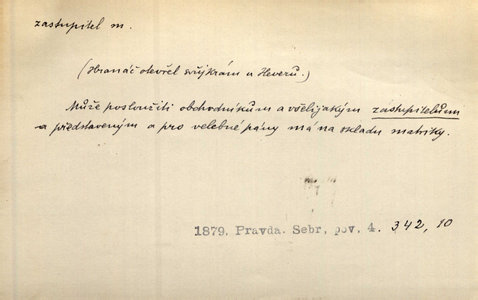 zastupitel m.
(Hranáč otevřel svůj krám u Heverů.)
Může posloužiti obchodníkům a všelijakým zástupitelům
a představeným a pro velebné pány má na skladu matriky.
1879. Pravda. Sebr. pov. 4. 342, 10